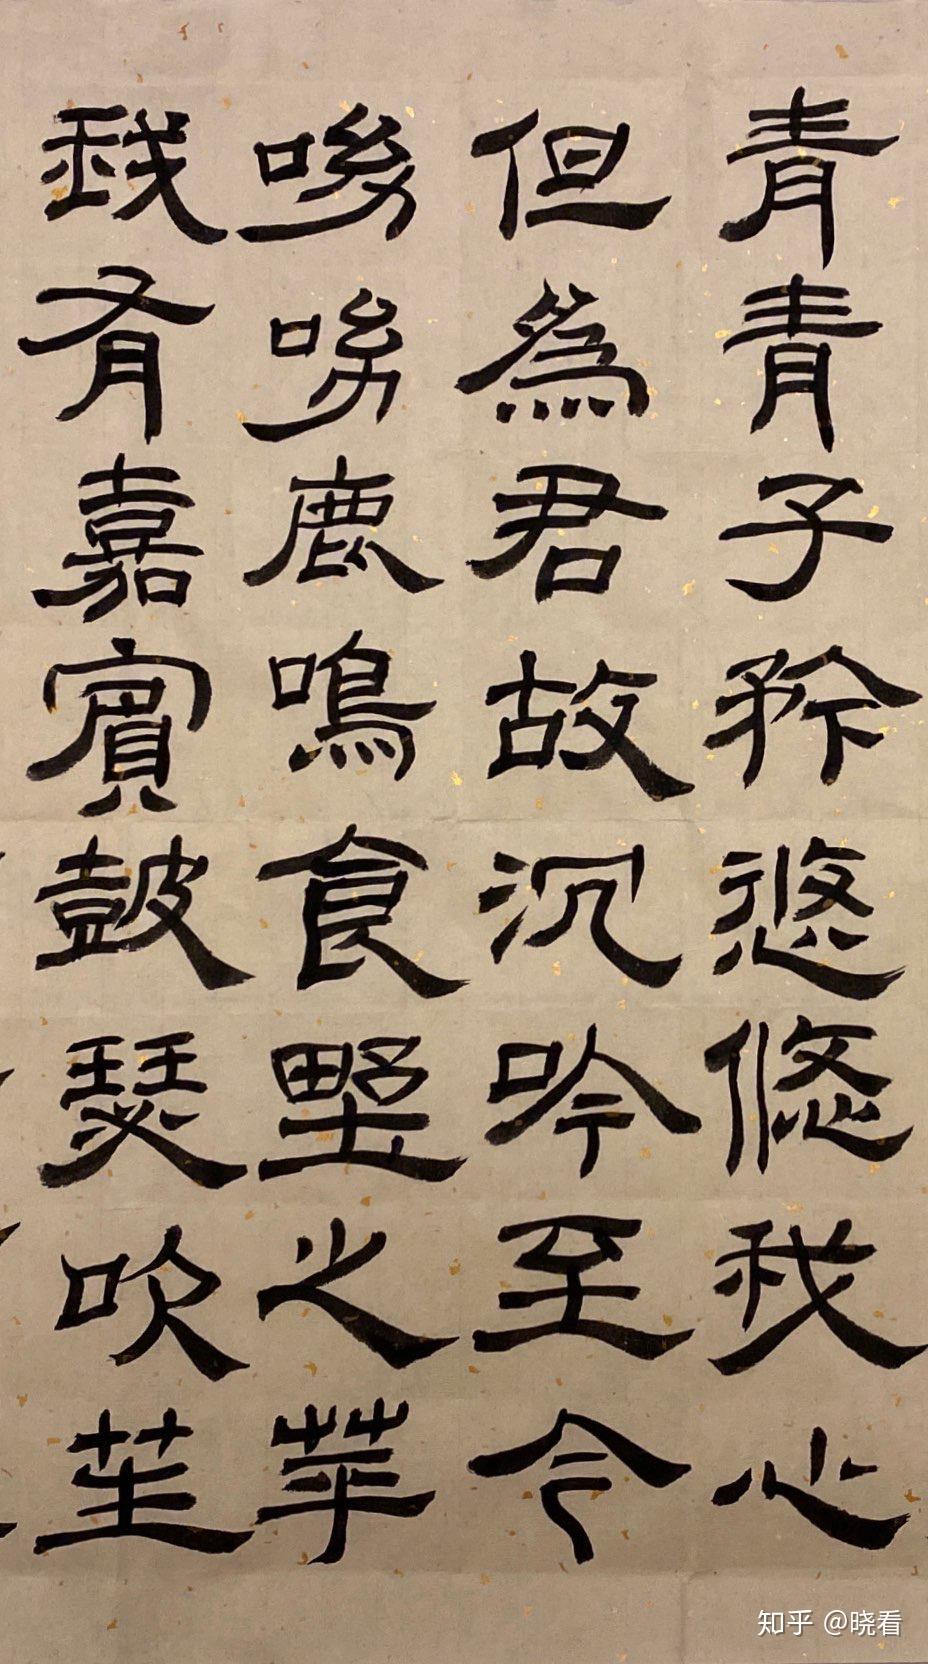 青青子衿悠悠我心
但為君故沉吟至今
呦呦鹿鳴食野之苹
我有嘉賓鼓瑟吹笙
知乎 @晓看